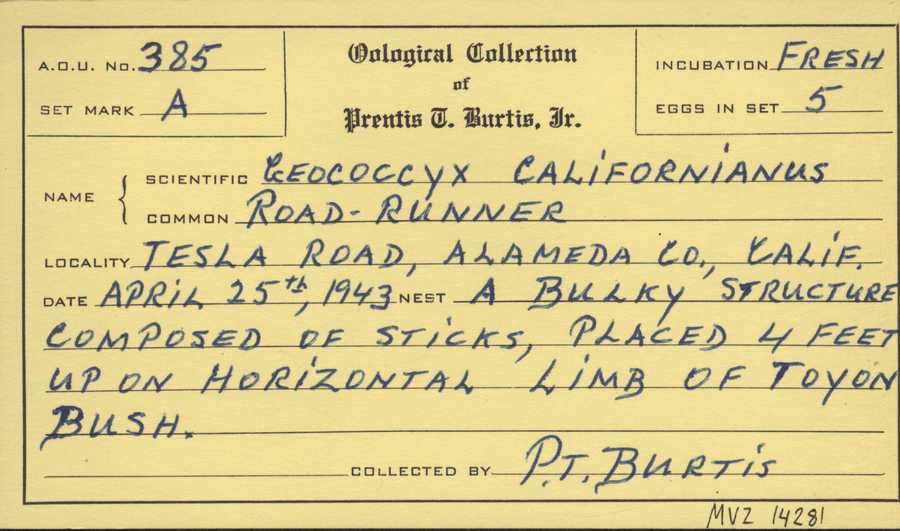 A.O.U. No. 385
SET MARK A
Oological Collection
of
Prentis T. Burtis, Jr.
INCUBATION FRESH
EGGS IN SET 5
NAME
SCIENTIFIC GEOCOCCYX CALIFORNIANUS
COMMON ROAD-RUNNER
LOCALITY TESLA ROAD, ALAMEDA CO., CALIF.
DATE APRIL 25th, 1943 NEST A BULKY STRUCTURE
COMPOSED OF STICKS, PLACED 4 FEET
UP ON HORIZONTAL LIMB OF TOYON
BUSH.
COLLECTED BY P.T. BURTIS
MVZ 14281